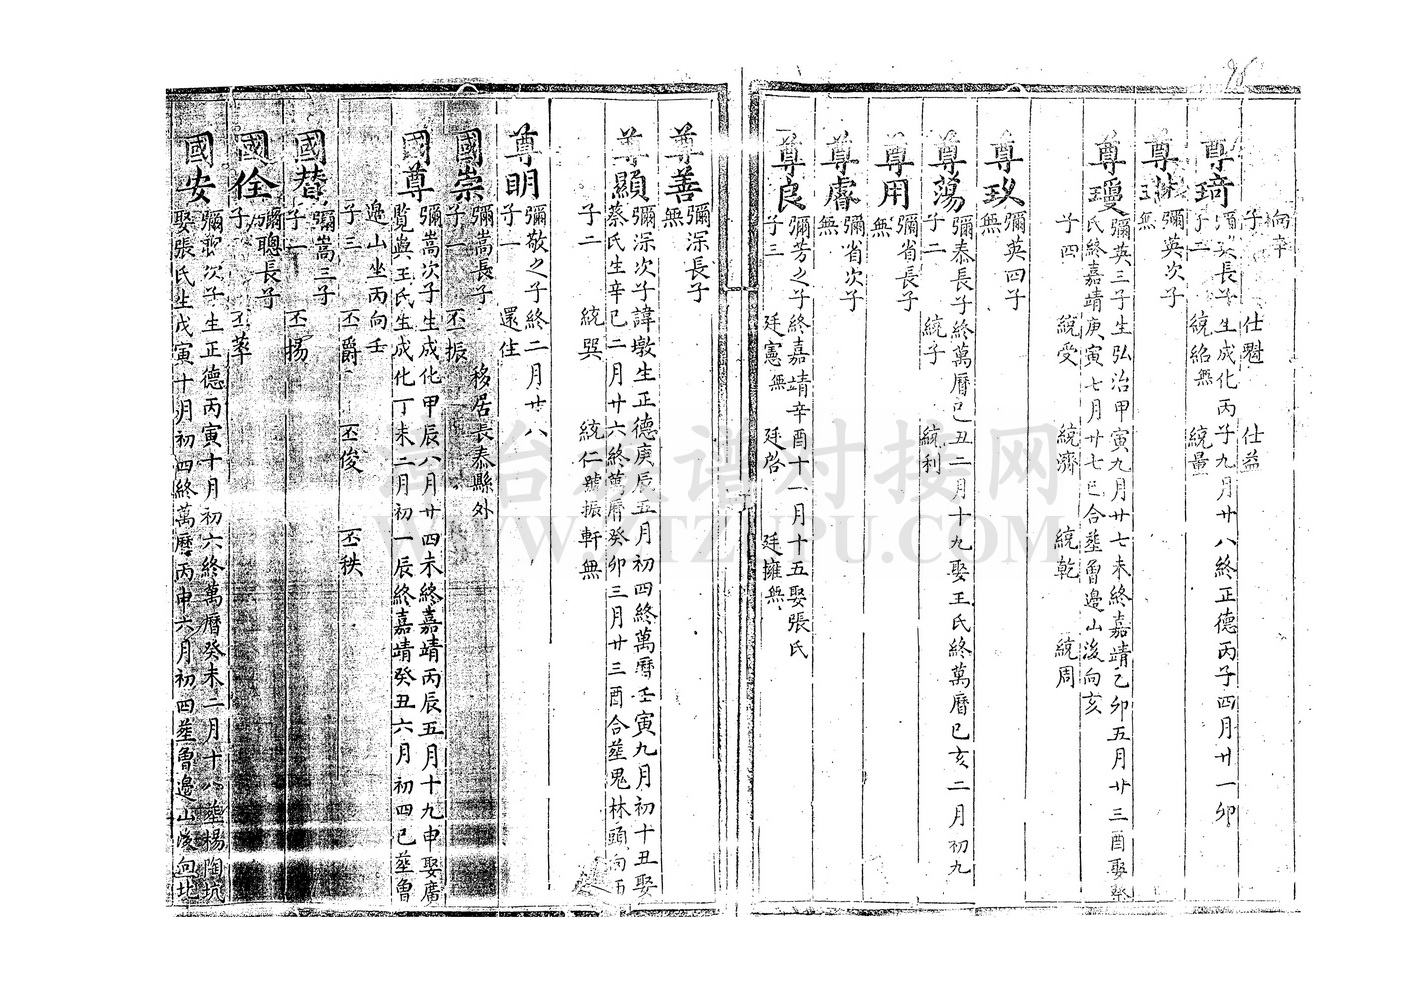 向辛
子　仕魁　仕益
尊琦
長子生成化丙子九月廿八終正德丙子四月廿一卯
子二　統紹無　統量
尊
彌英次子
無
尊瓊
彌英三子生弘治甲寅九月廿七未終嘉靖乙卯五月廿三酉娶蔡
氏終嘉靖庚寅七月廿七巳合塟魯邊山後向亥
子四　統受　統濟　統乾　統周
尊玖
彌英四子
無
尊蕩
彌泰長子終萬曆己丑二月十九娶王氏終萬曆己亥二月初九
子二　統子　統利
尊用
彌省長子
無
尊睿
彌省次子
無
尊良
彌芳之子終嘉靖辛酉十一月十五娶張氏
子三　廷憲無　廷啓　廷擁無
尊善
彌深長子
無
尊顯
彌深次子諱墩生正德庚辰五月初四終萬曆壬寅九月初十丑娶
蔡氏生辛巳二月廿六終萬曆癸卯三月廿三酉合塟鬼林頭向
子二　統巽　統仁號振軒無
尊明
彌敬之子終二月廿八
子一　還住
國崇
彌嵩長子　移居長泰縣外
子一　丕振
國尊
彌嵩次子生成化甲辰八月廿四未終嘉靖丙辰五月十九申娶廣
覧與王氏生成化丁未二月初一辰終嘉靖癸丑六月初四巳塟魯
邊山坐丙向壬
子三　丕爵　丕俊　丕秩
國替
彌嵩三子
子一　丕揚
國佺
彌聰長子
子　丕萃
國安
彌聰次子生正德丙寅十月初六終萬曆癸未二月十八塟楊陶坑
娶張氏生戊寅十月初四終萬曆丙申六月初四塟魯邊山後向北
台族谱对接网
WWW.ZTZUPU.COM